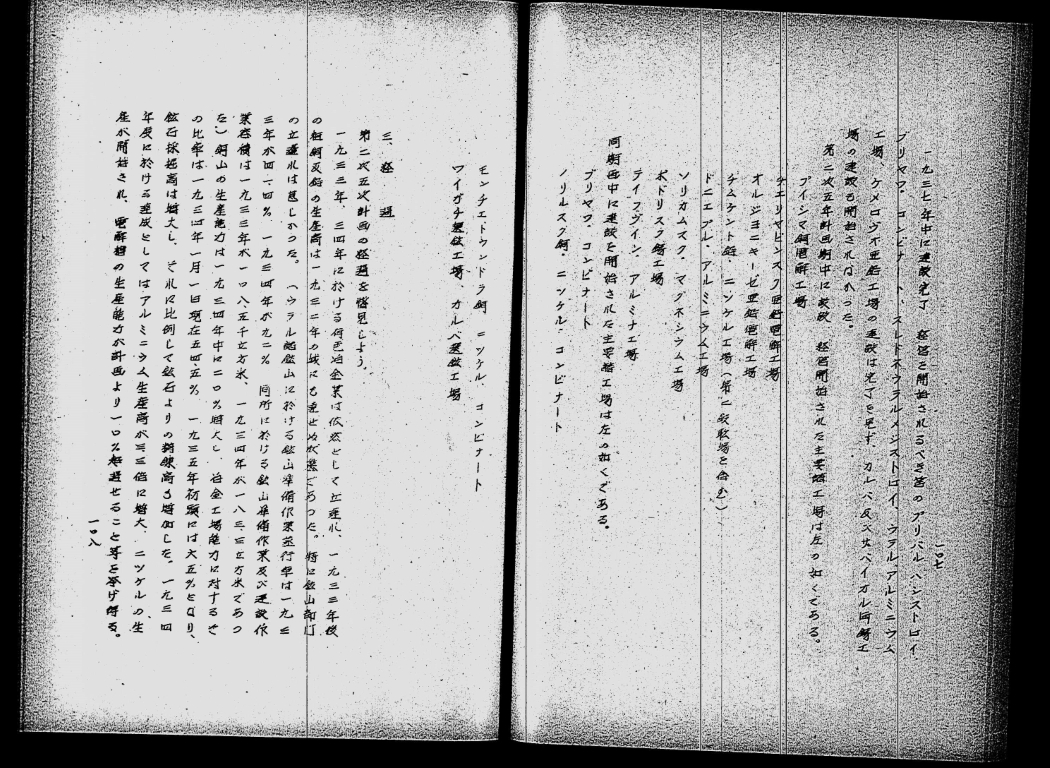 一九三七年中に建設完了 経営を開始されるべき筈のアリバルハシストロイ、
プリヤワ・コンビナート、スレドネウラルメジストロイ、ウラルアルミニウム
工場、ケメロヴオ亜鉛工場の建設は完了を見ず、カルバ及ザバイカル同錫工
場の建設も開始されなかった。
第二次五年計画期中に改設 経営開始された主要諸工場は左の如くである。
プイシマ銅電解工場
チエリヤビンスク亜鉛電解工場
オルジヨニキーゼ亜鉛電解工場
チムケント鉛、ニツケル工場(第二段戦場を含む)
ドニエプル・アルミニウム工場
ソリカムスク・マグネシウム工場
ポドリスク錫工場
テイフヴイン・アルミナ工場
プリヤワ・コンビナート
ノリルスク銅・ニツケル・コンビナート
同期中に建設を開始された主要諸工場は左の如くである。
一〇七
モンチエトウンドラ銅 ニツケル、コンビナート
ワイガチ選鉱工場、カルバ選鉱工場
三、経過
第二次五次計画の経過を瞥見しよう。
一九三三年、三四年に於ける有色冶金業は依然として立遅れ、一九三三年後
の粗銅及鉛の生産高は一九三二年の域にも達せぬ状態であつた。特に鉱山部門
の立遅れは甚しかつた。(ウラル諸鉱山に於ける鉱山準備作業並行率は一九三
三年が四一・四%、一九三四年が九二% 同所に於ける鉱山準備作業及び建設作
業容積は一九三三年が一〇八、五千立方米、一九三四年が一八三、三立方米であつ
た)銅山の生産能力は一九三四年中に二〇%増大し 冶金工場能力に対するそ
の比率は一九三四年一月一日現在五四五% 一九三五年初頭には六五%となり、
鉱石採掘高は増大し、それに比例して鉱石よりの製錬高も増加した。一九三四
年度に於ける達成としてはアルミニウム生産高が三三倍に増大、ニツケルの生
産が開始され、電解槽の生産能力が計画より一〇%超過せること等を挙げ得る。
一〇八